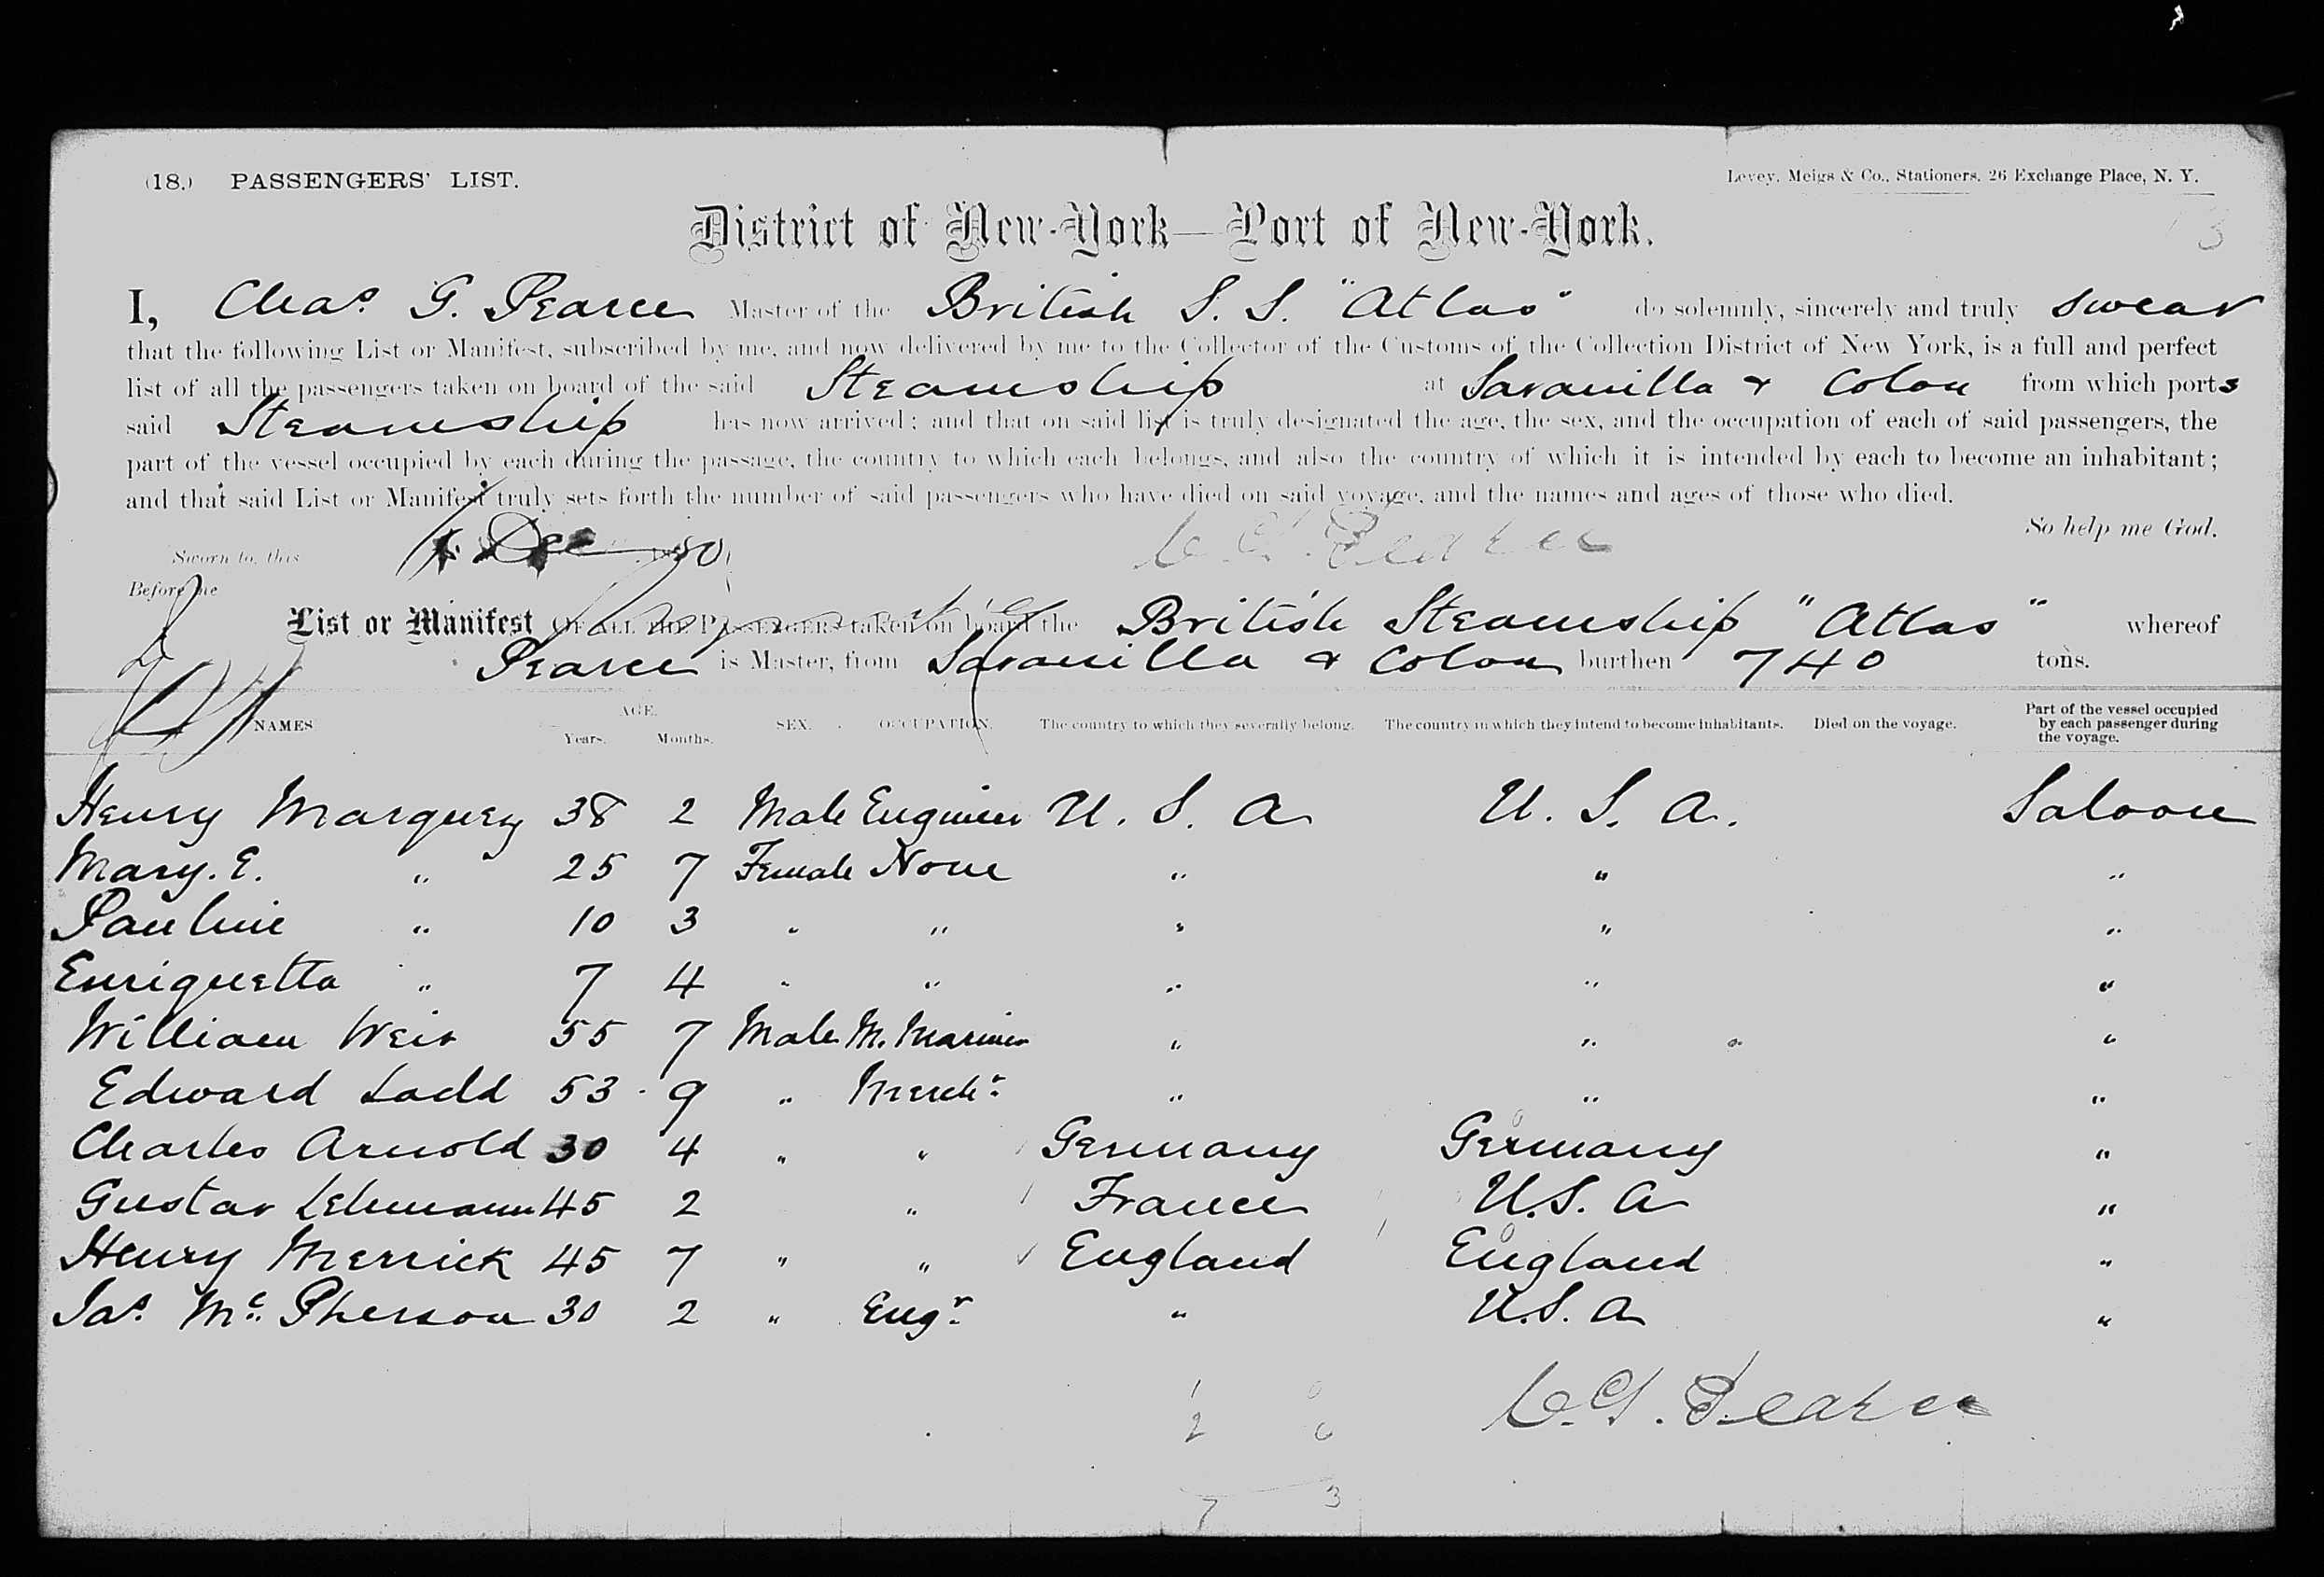 (18.) PASSENGERS' LIST.
Levey, Meigs & Co., Stationers, 26 Exchange Place, N. Y.
3
District of New-York—Port of New-York.
I, Chas. G. Pearce Master of the British S. S. "Atlas" do solemnly, sincerely and truly swear
that the following List or Manifest, subscribed by me, and now delivered by me to the Collector of the Customs of the Collection District of New York, is a full and perfect
list of all the passengers taken on board of the said Steamship at Savanilla & Colon from which ports
said Steamship has now arrived; and that on said list is truly designated the age, the sex, and the occupation of each of said passengers, the
part of the vessel occupied by each during the passage, the country to which each belongs, and also the country of which it is intended by each to become an inhabitant;
and that said List or Manifest truly sets forth the number of said passengers who have died on said voyage, and the names and ages of those who died.
So help me God.
Sworn to, this Dec 80 C. G. Pearce
Before me
List or Manifest OF ALL THE PASSENGERS taken on board the British Steamship "Atlas" whereof
Pearce is Master, from Savanilla & Colon burthen 740 tons.
NAMES AGE. Years. Months. SEX. OCCUPATION. The country to which they severally belong. The country in which they intend to become inhabitants. Died on the voyage. Part of the vessel occupied by each passenger during the voyage.
Henry Marquez 38 2 Male Engineer U. S. A U. S. A. Saloon
Mary. E. " 25 7 Female None " " "
Pauline " 10 3 " " " " "
Enriquetta " 7 4 " " " " "
William Weir 55 7 Male M. Mariner " " "
Edward Ladd 53 9 " Mercht. " " "
Charles Arnold 30 4 " " Germany Germany "
Gustav Lehmann 45 2 " France U.S. A "
Henry Merrick 45 7 " " England England "
Jas. Mc. Pherson 30 2 " Engr. " U.S. A "
C. G. Pearce
1
2
7 3